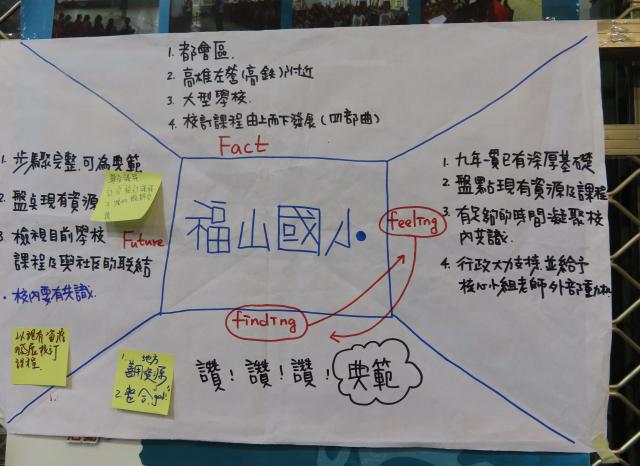 1. 都會區.
2. 高雄左營(高鉄)附近
3. 大型學校.
4. 校訂課程由上而下發展(四部曲)
Fact
1. 步驟完整.可為典範
2. 盤点現有資源
3. 檢視目前學校
課程及與社區的联結
・校內要有共識.
Future
福山國小
feeling
1. 九年一貫已有深厚基礎
2. 盤點現有資源及課程
3. 有足夠的時間凝聚校
內共識.
4. 行政大力支持.並給予
核心小組老師外部
finding
讚! 讚! 讚! 典範
以現有
校訂
課程
1. 地方
資源
2. 整合
活動